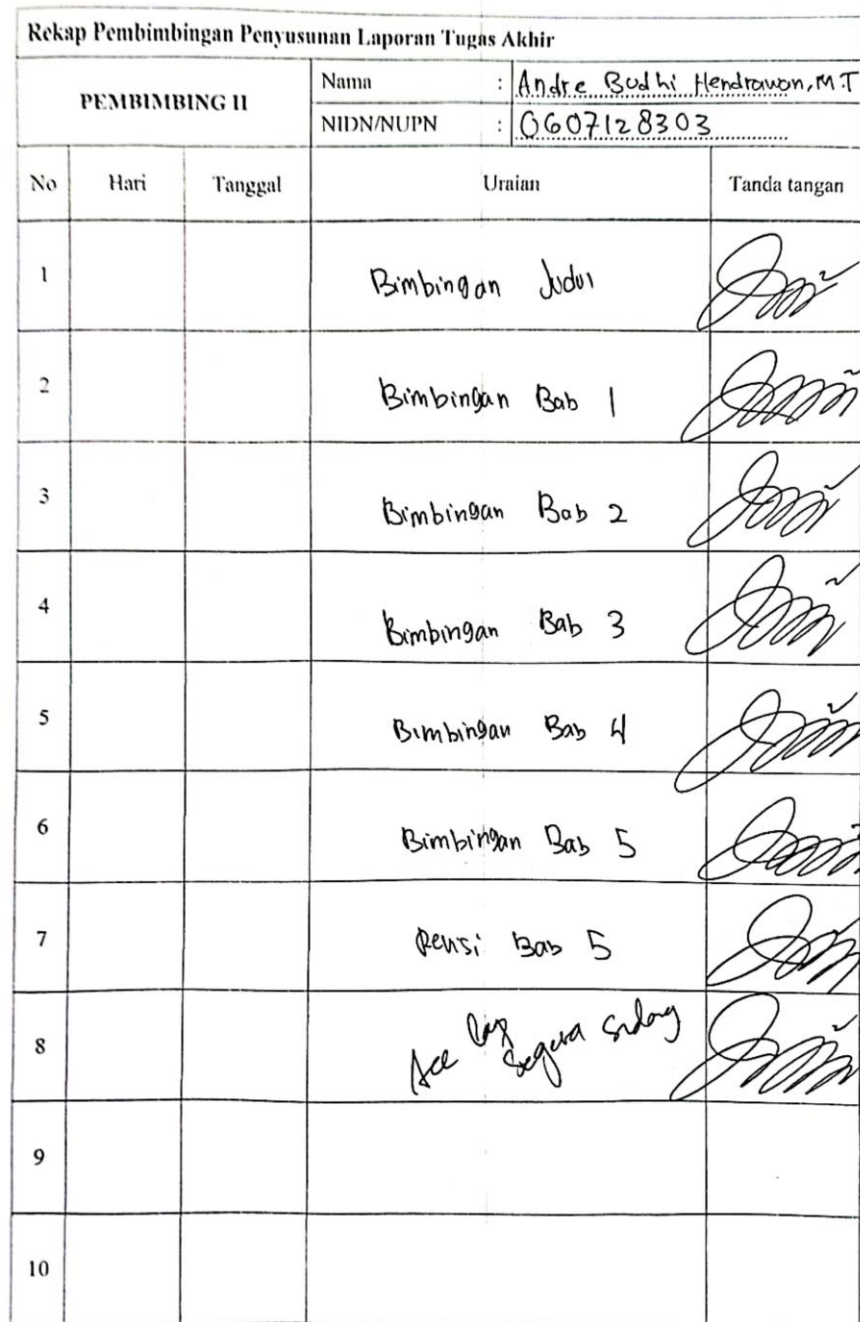 Rekap Pembimbingan Penyusunan Laporan Tugas Akhir
PEMBIMBING II
Nama : Andre Budhi Hendrawan, M.T
NIDN/NUPN : 0607128303
No Hari Tanggal Uraian Tanda tangan
1 Bimbingan Judul
2 Bimbingan Bab 1
3 Bimbingan Bab 2
4 Bimbingan Bab 3
5 Bimbingan Bab 4
6 Bimbingan Bab 5
7 Revisi Bab 5
8 Acc Lap Segera Sidang
9
10